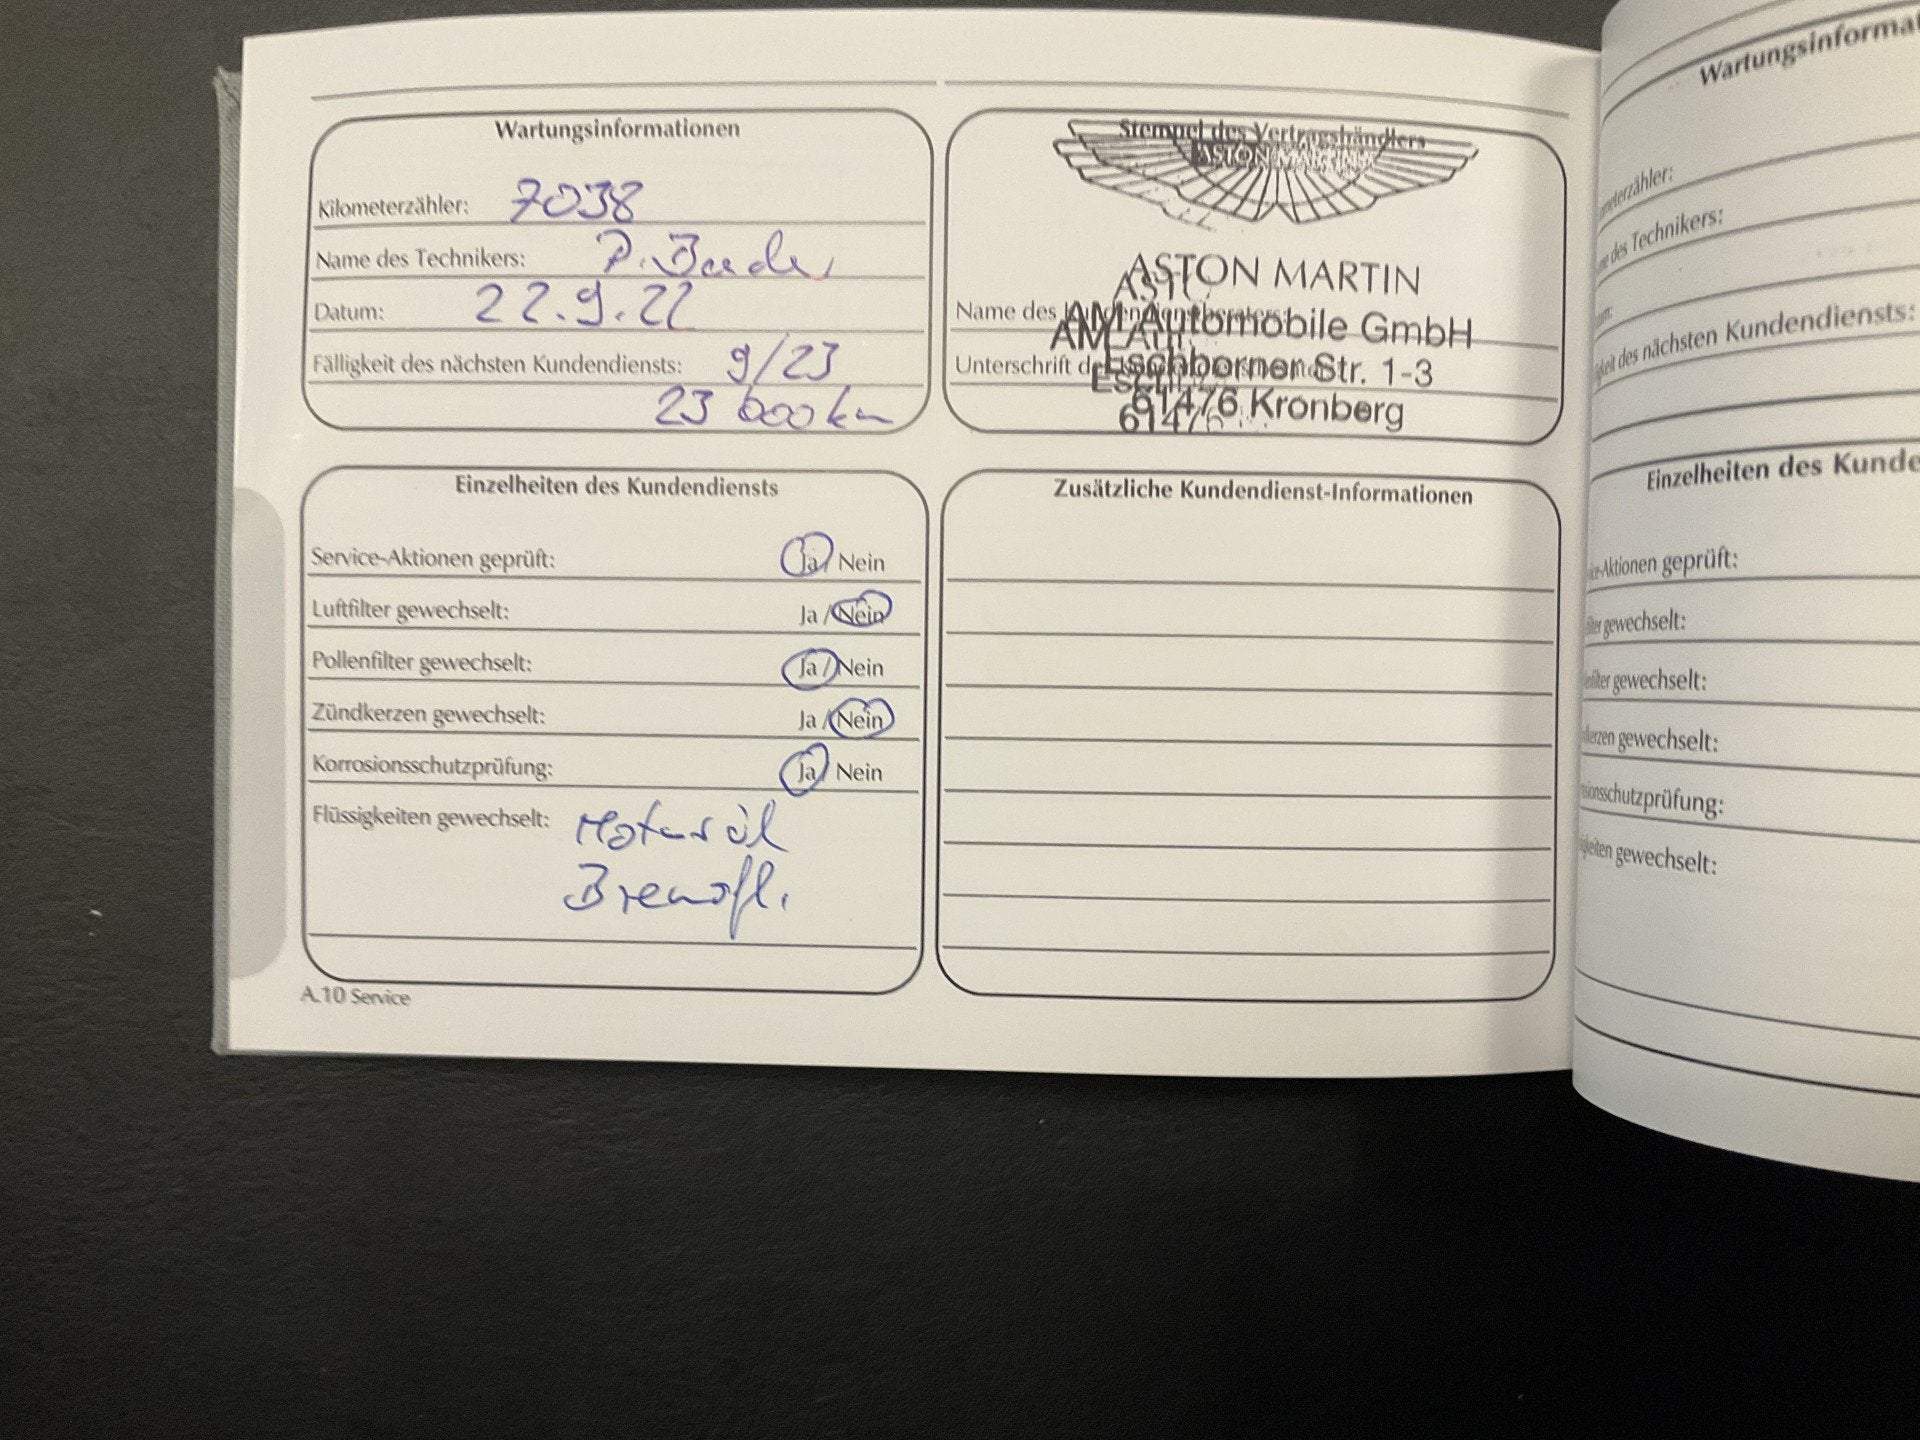 Wartungsinformationen
Kilometerzähler: 7038
Name des Technikers: P.
Datum: 22.9.22
Fälligkeit des nächsten Kundendiensts: 9/23
23 000 km
Stempel des Vertragshändlers
ASTON MARTIN
ASTON MARTIN
Name des
AM Automobile GmbH
Unterschrift
Eschborner Str. 1-3
61476 Kronberg
Einzelheiten des Kundendiensts
Service-Aktionen geprüft: Ja / Nein
Luftfilter gewechselt: Ja / Nein
Pollenfilter gewechselt: Ja / Nein
Zündkerzen gewechselt: Ja / Nein
Korrosionsschutzprüfung: Ja / Nein
Flüssigkeiten gewechselt: Motoröl
Bremsfl.
A.10 Service
Zusätzliche Kundendienst-Informationen
Wartungsinforma
meterzähler:
des Technikers:
des nächsten Kundendiensts:
Einzelheiten des Kunde
-Aktionen geprüft:
gewechselt:
gewechselt:
gewechselt:
sionsschutzprüfung:
gewechselt: